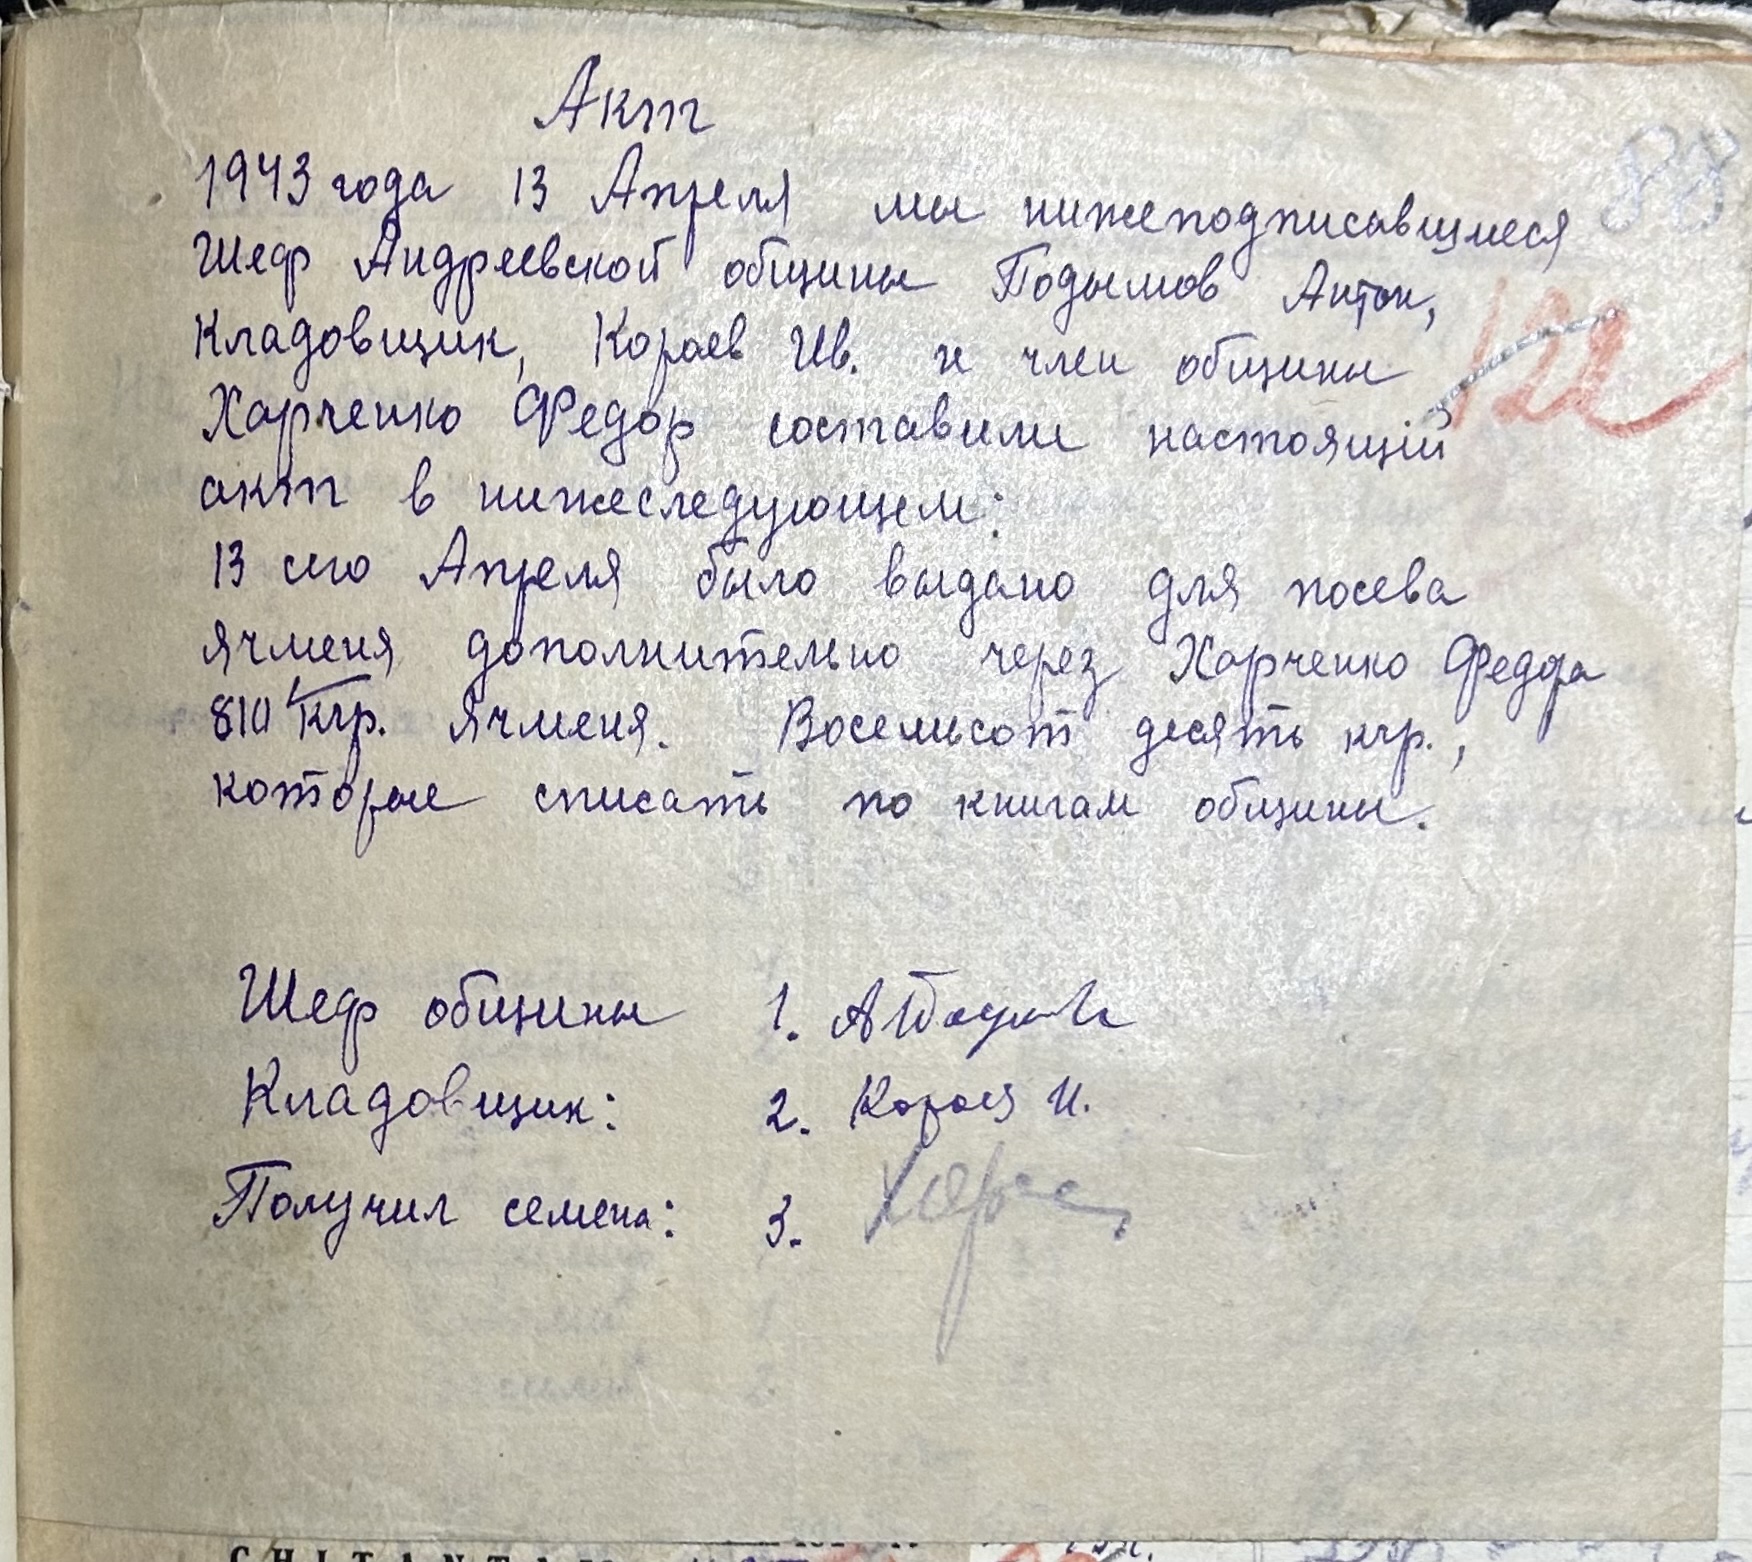 Акт
88
1943 года 13 Апреля мы нижеподписавщиеся
Шеф Андреевской общины Подымов Антон,
Кладовщик, Кораев Ив. и член общины
122
Харченко Федор составили настоящий
акт в нижеследующем:
13 сего Апреля было выдано для посева
ячменя дополнительно через Харченко Федора
810 кгр. ячменя. Восемьсот десять кгр.,
которые списать по книгам общины.
Шеф общины 1.
Кладовщик: 2. Кораев И.
Получил семена: 3.
CHITANTA